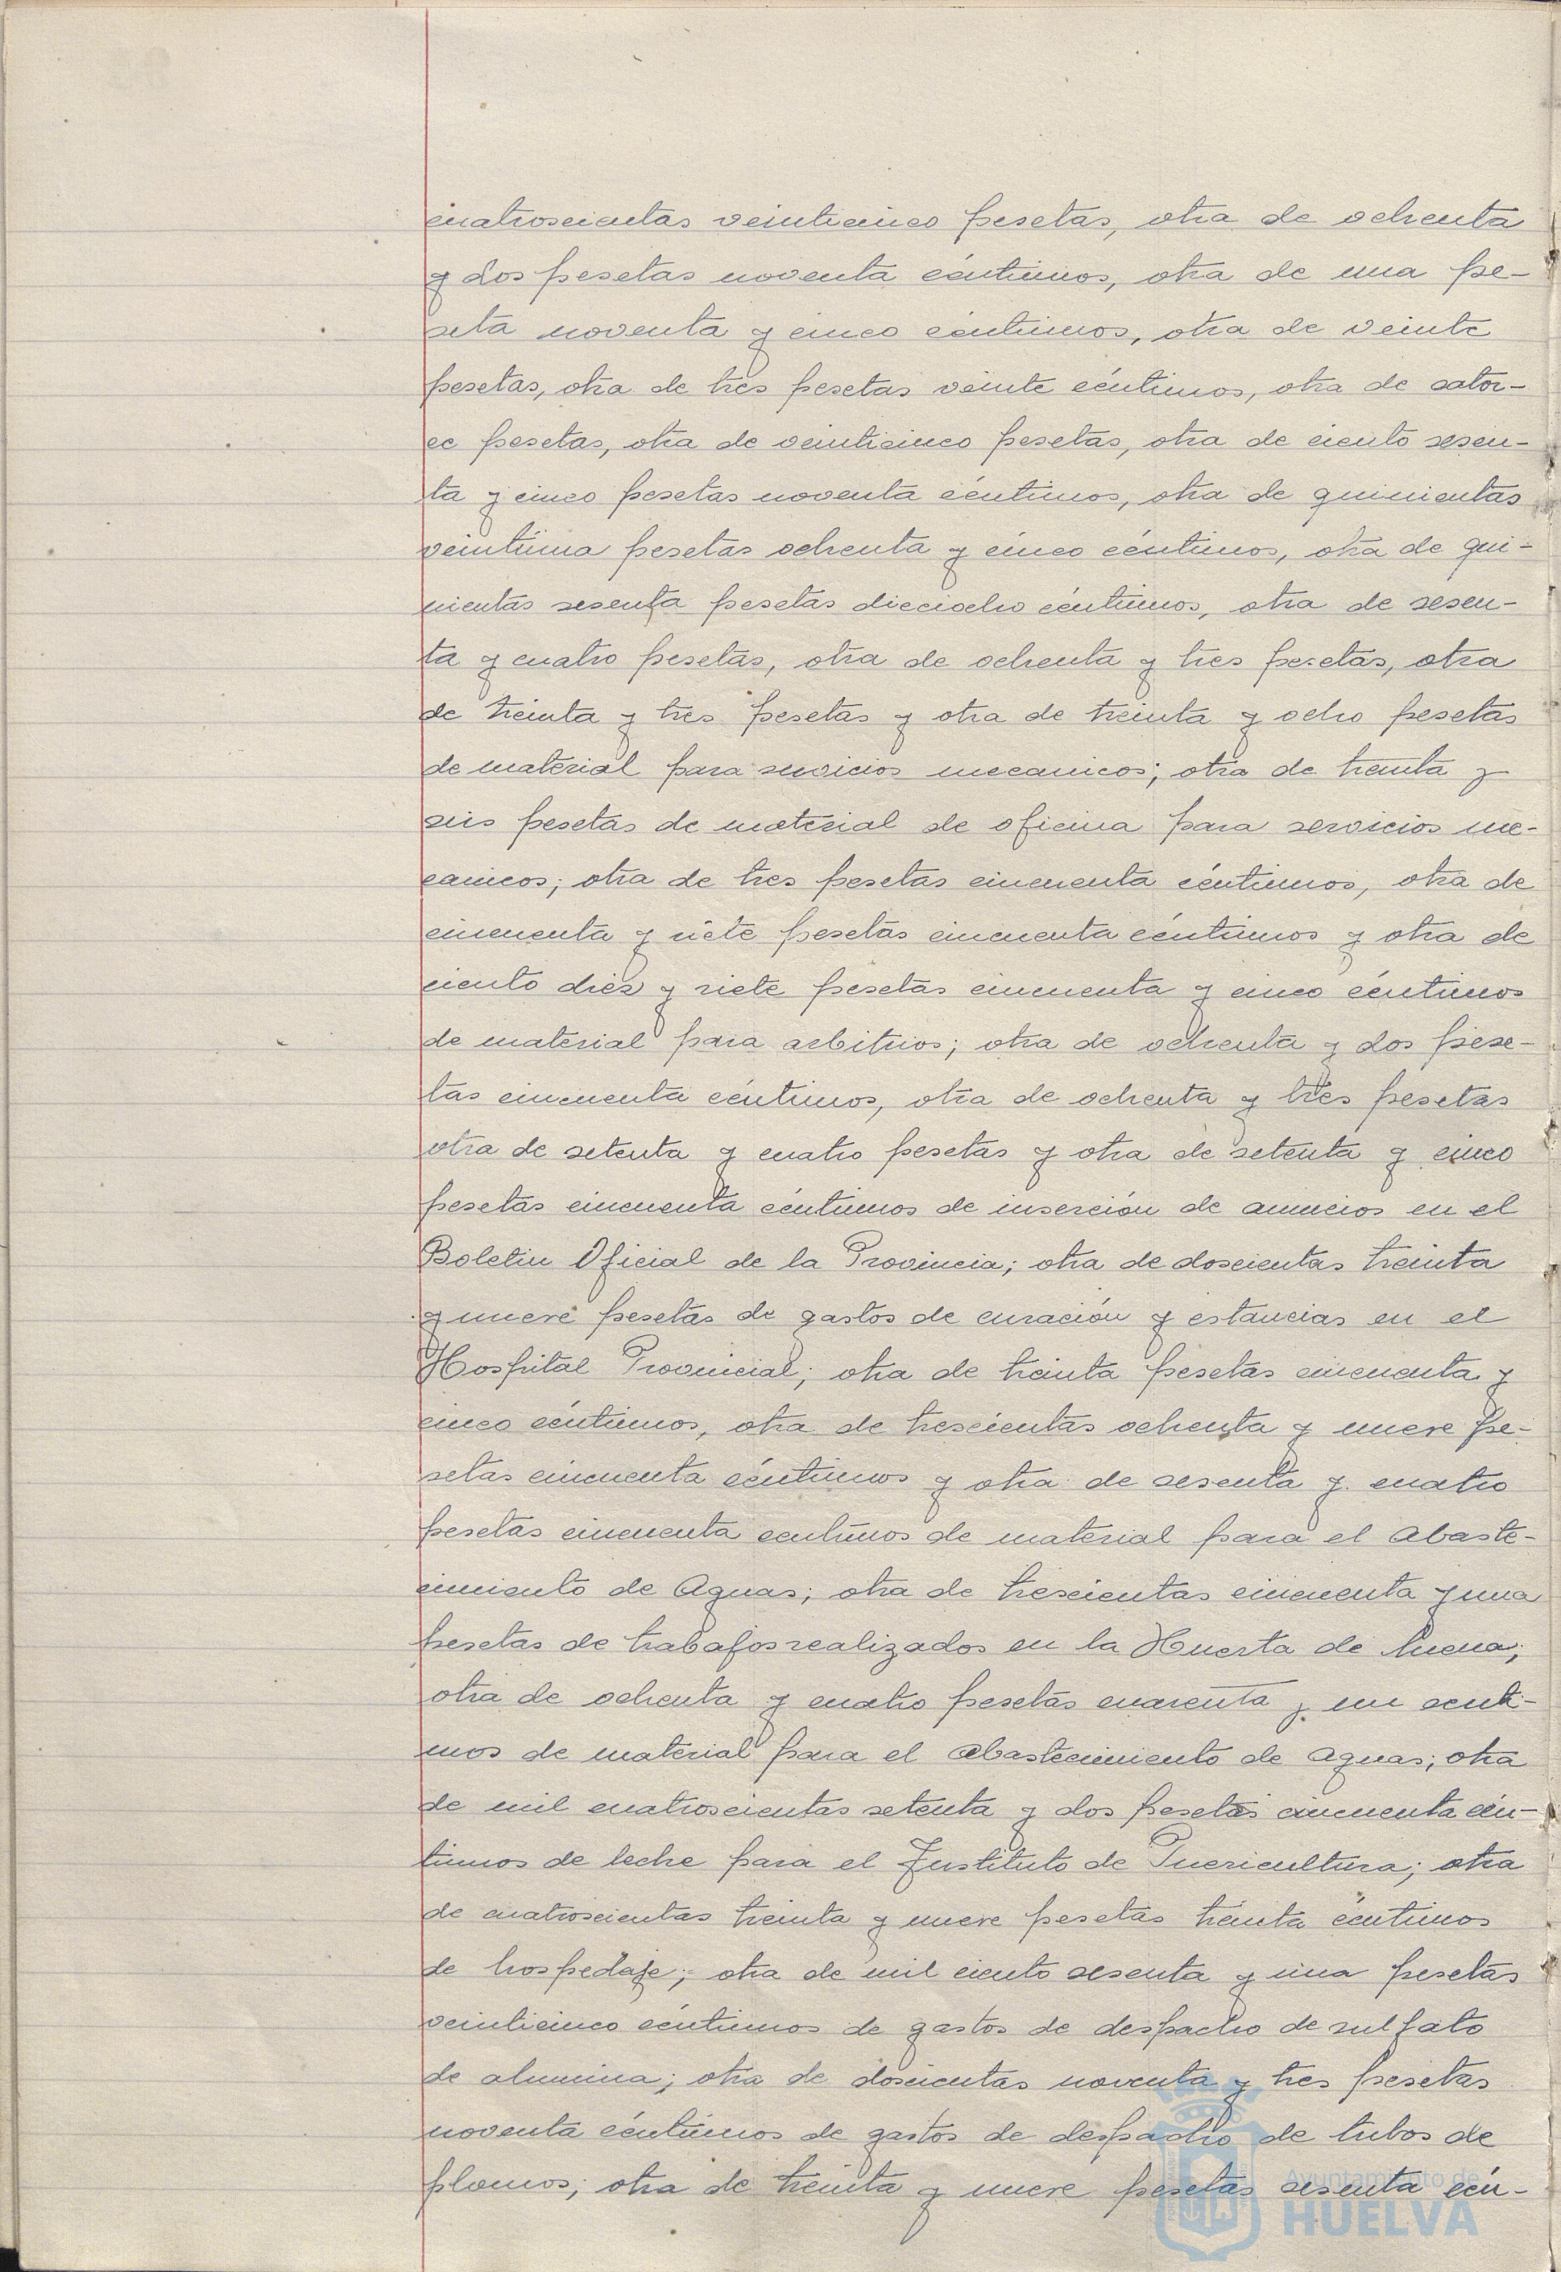 cuatroscientas veinticinco pesetas, otra de ochenta
y dos pesetas noventa céntimos, otra de una pe-
seta noventa y cinco céntimos, otra de veinte
pesetas, otra de tres pesetas veinte céntimos, otra de cator-
ce pesetas, otra de veinticinco pesetas, otra de ciento sesen-
ta y cinco pesetas noventa céntimos, otra de quinientas
veintiuna pesetas ochenta y cinco céntimos, otra de qui-
nientas sesenta pesetas dieciocho céntimos, otra de sesen-
ta y cuatro pesetas, otra de ochenta y tres pesetas, otra
de treinta y tres pesetas y otra de treinta y ocho pesetas
de material para servicios mecanicos; otra de treinta y
seis pesetas de material de oficina para servicios me-
canicos; otra de tres pesetas cincuenta céntimos, otra de
cincuenta y siete pesetas cincuenta céntimos y otra de
ciento diez y siete pesetas cincuenta y cinco céntimos
de material para arbitrios; otra de ochenta y dos pese-
tas cincuenta céntimos, otra de ochenta y tres pesetas
otra de setenta y cuatro pesetas y otra de setenta y cinco
pesetas cincuenta céntimos de inserción de anuncios en el
Boletin Oficial de la Provincia; otra de doscientas treinta
y nueve pesetas de gastos de curación y estancias en el
Hospital Provincial; otra de treinta pesetas cincuenta y
cinco céntimos, otra de trescientas ochenta y nueve pe-
setas cincuenta céntimos y otra de sesenta y cuatro
pesetas cincuenta centimos de material para el Abaste-
cimiento de Aguas; otra de trescientas cincuenta y una
pesetas de trabajos realizados en la Huerta de Mena;
otra de ochenta y cuatro pesetas cuarenta y un centi-
mos de material para el Abastecimiento de Aguas; otra
de mil cuatroscientas setenta y dos pesetas cincuenta cén-
timos de leche para el Instituto de Puericultura; otra
de cuatroscientas treinta y nueve pesetas treinta céntimos
de hospedaje; otra de mil ciento sesenta y una pesetas
veinticinco céntimos de gastos de despacho de sulfato
de alumina; otra de doscientas noventa y tres pesetas
noventa céntimos de gastos de despacho de tubos de
plomos; otra de treinta y nueve pesetas sesenta cén-
Ayuntamiento de
HUELVA